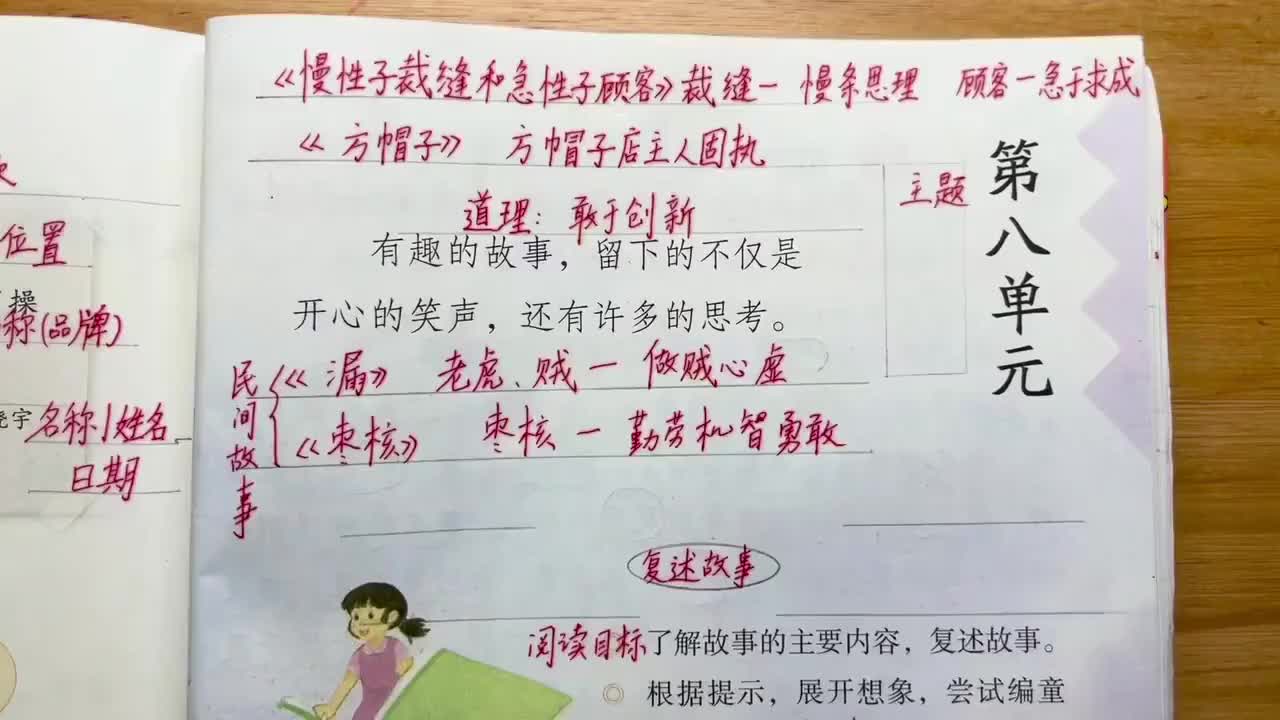 《慢性子裁缝和急性子顾客》裁缝一 慢条思理 顾客一急于求成
《方帽子》 方帽子店主人固执
主题
第八单元
道理：敢于创新
有趣的故事，留下的不仅是
开心的笑声，还有许多的思考。
民间故事
《漏》 老虎、贼一 做贼心虚
《枣核》 枣核一 勤劳机智勇敢
复述故事
阅读目标了解故事的主要内容，复述故事。
根据提示，展开想象，尝试编童
位置
操
称(品牌)
宇名称|姓名
日期